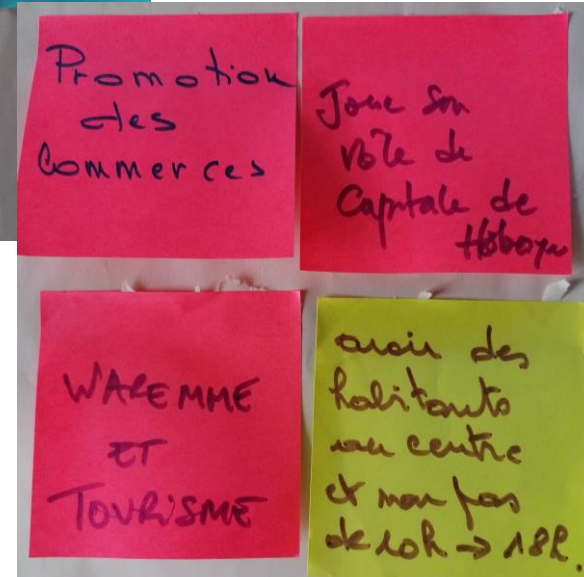 Promotion
des
Commerces
Joue son
rôle de
Capitale de
Hesbaye
WAREMME
ET
TOURISME
avoir des
habitants
au centre
et non pas
de 10h → 18h.